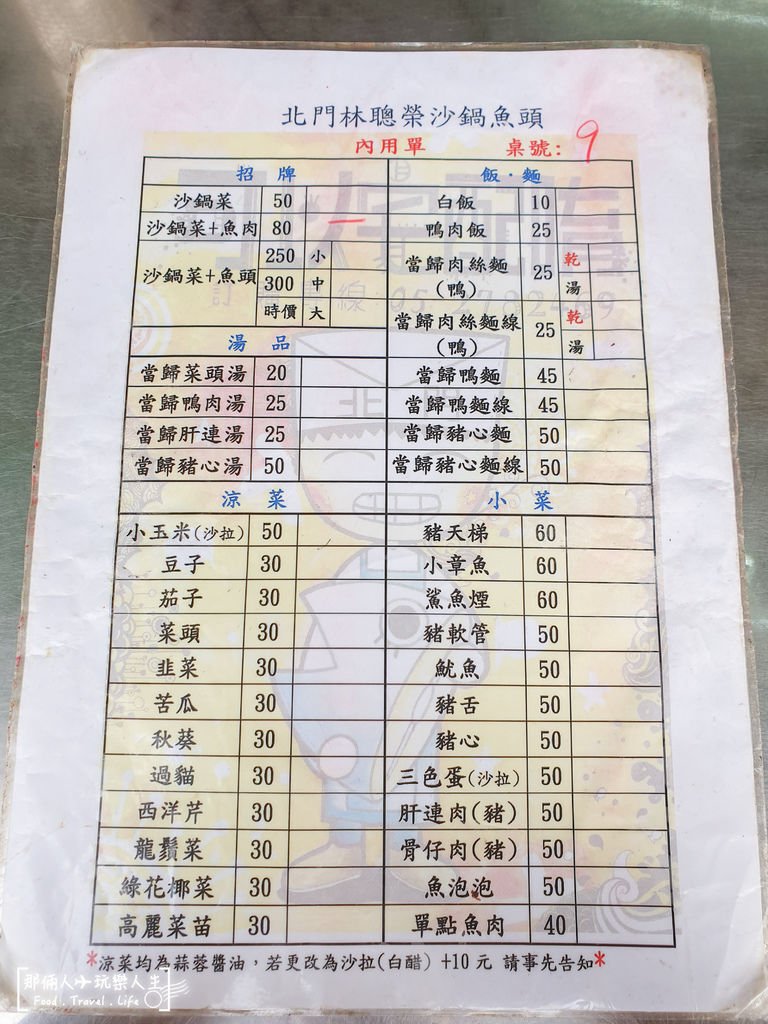 北門林聰榮沙鍋魚頭
內用單 桌號: 9
招 牌
沙鍋菜 50
沙鍋菜+魚肉 80
沙鍋菜+魚頭 250 小
300 中
時價 大
湯 品
當歸菜頭湯 20
當歸鴨肉湯 25
當歸肝連湯 25
當歸豬心湯 50
飯·麵
白飯 10
鴨肉飯 25
當歸肉絲麵(鴨) 25 乾
湯
當歸肉絲麵線(鴨) 25 乾
湯
當歸鴨麵 45
當歸鴨麵線 45
當歸豬心麵 50
當歸豬心麵線 50
涼 菜
小玉米(沙拉) 50
豆子 30
茄子 30
菜頭 30
韭菜 30
苦瓜 30
秋葵 30
過貓 30
西洋芹 30
龍鬚菜 30
綠花椰菜 30
高麗菜苗 30
小 菜
豬天梯 60
小章魚 60
鯊魚煙 60
豬軟管 50
魷魚 50
豬舌 50
豬心 50
三色蛋(沙拉) 50
肝連肉(豬) 50
骨仔肉(豬) 50
魚泡泡 50
單點魚肉 40
*涼菜均為蒜蓉醬油，若更改為沙拉(白醋) +10元 請事先告知*
那倆人小玩樂人生
Food . Travel . Life